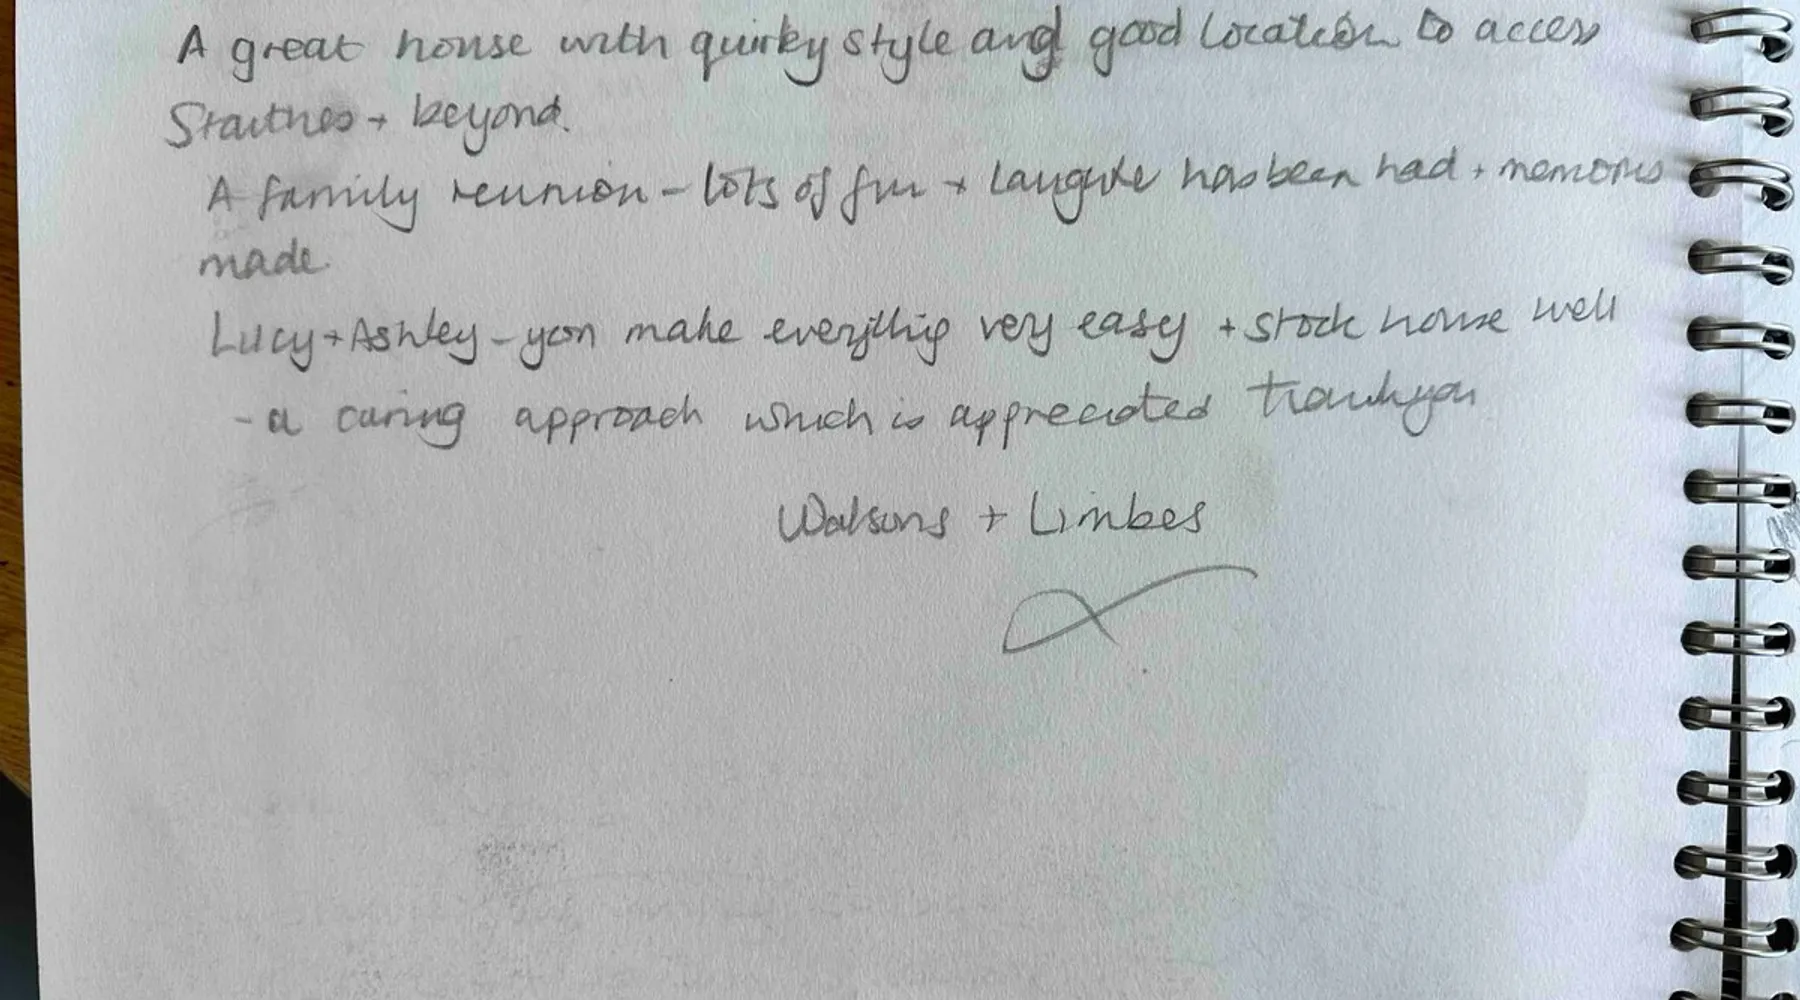 A great house with quirky style and good location to access
Staithes + beyond.
A family reunion - lots of fun + laughte has been had + memories
made.
Lucy + Ashley - you make everything very easy + stock house well
- a caring approach which is appreciated thankyou
Watsons + Limbes